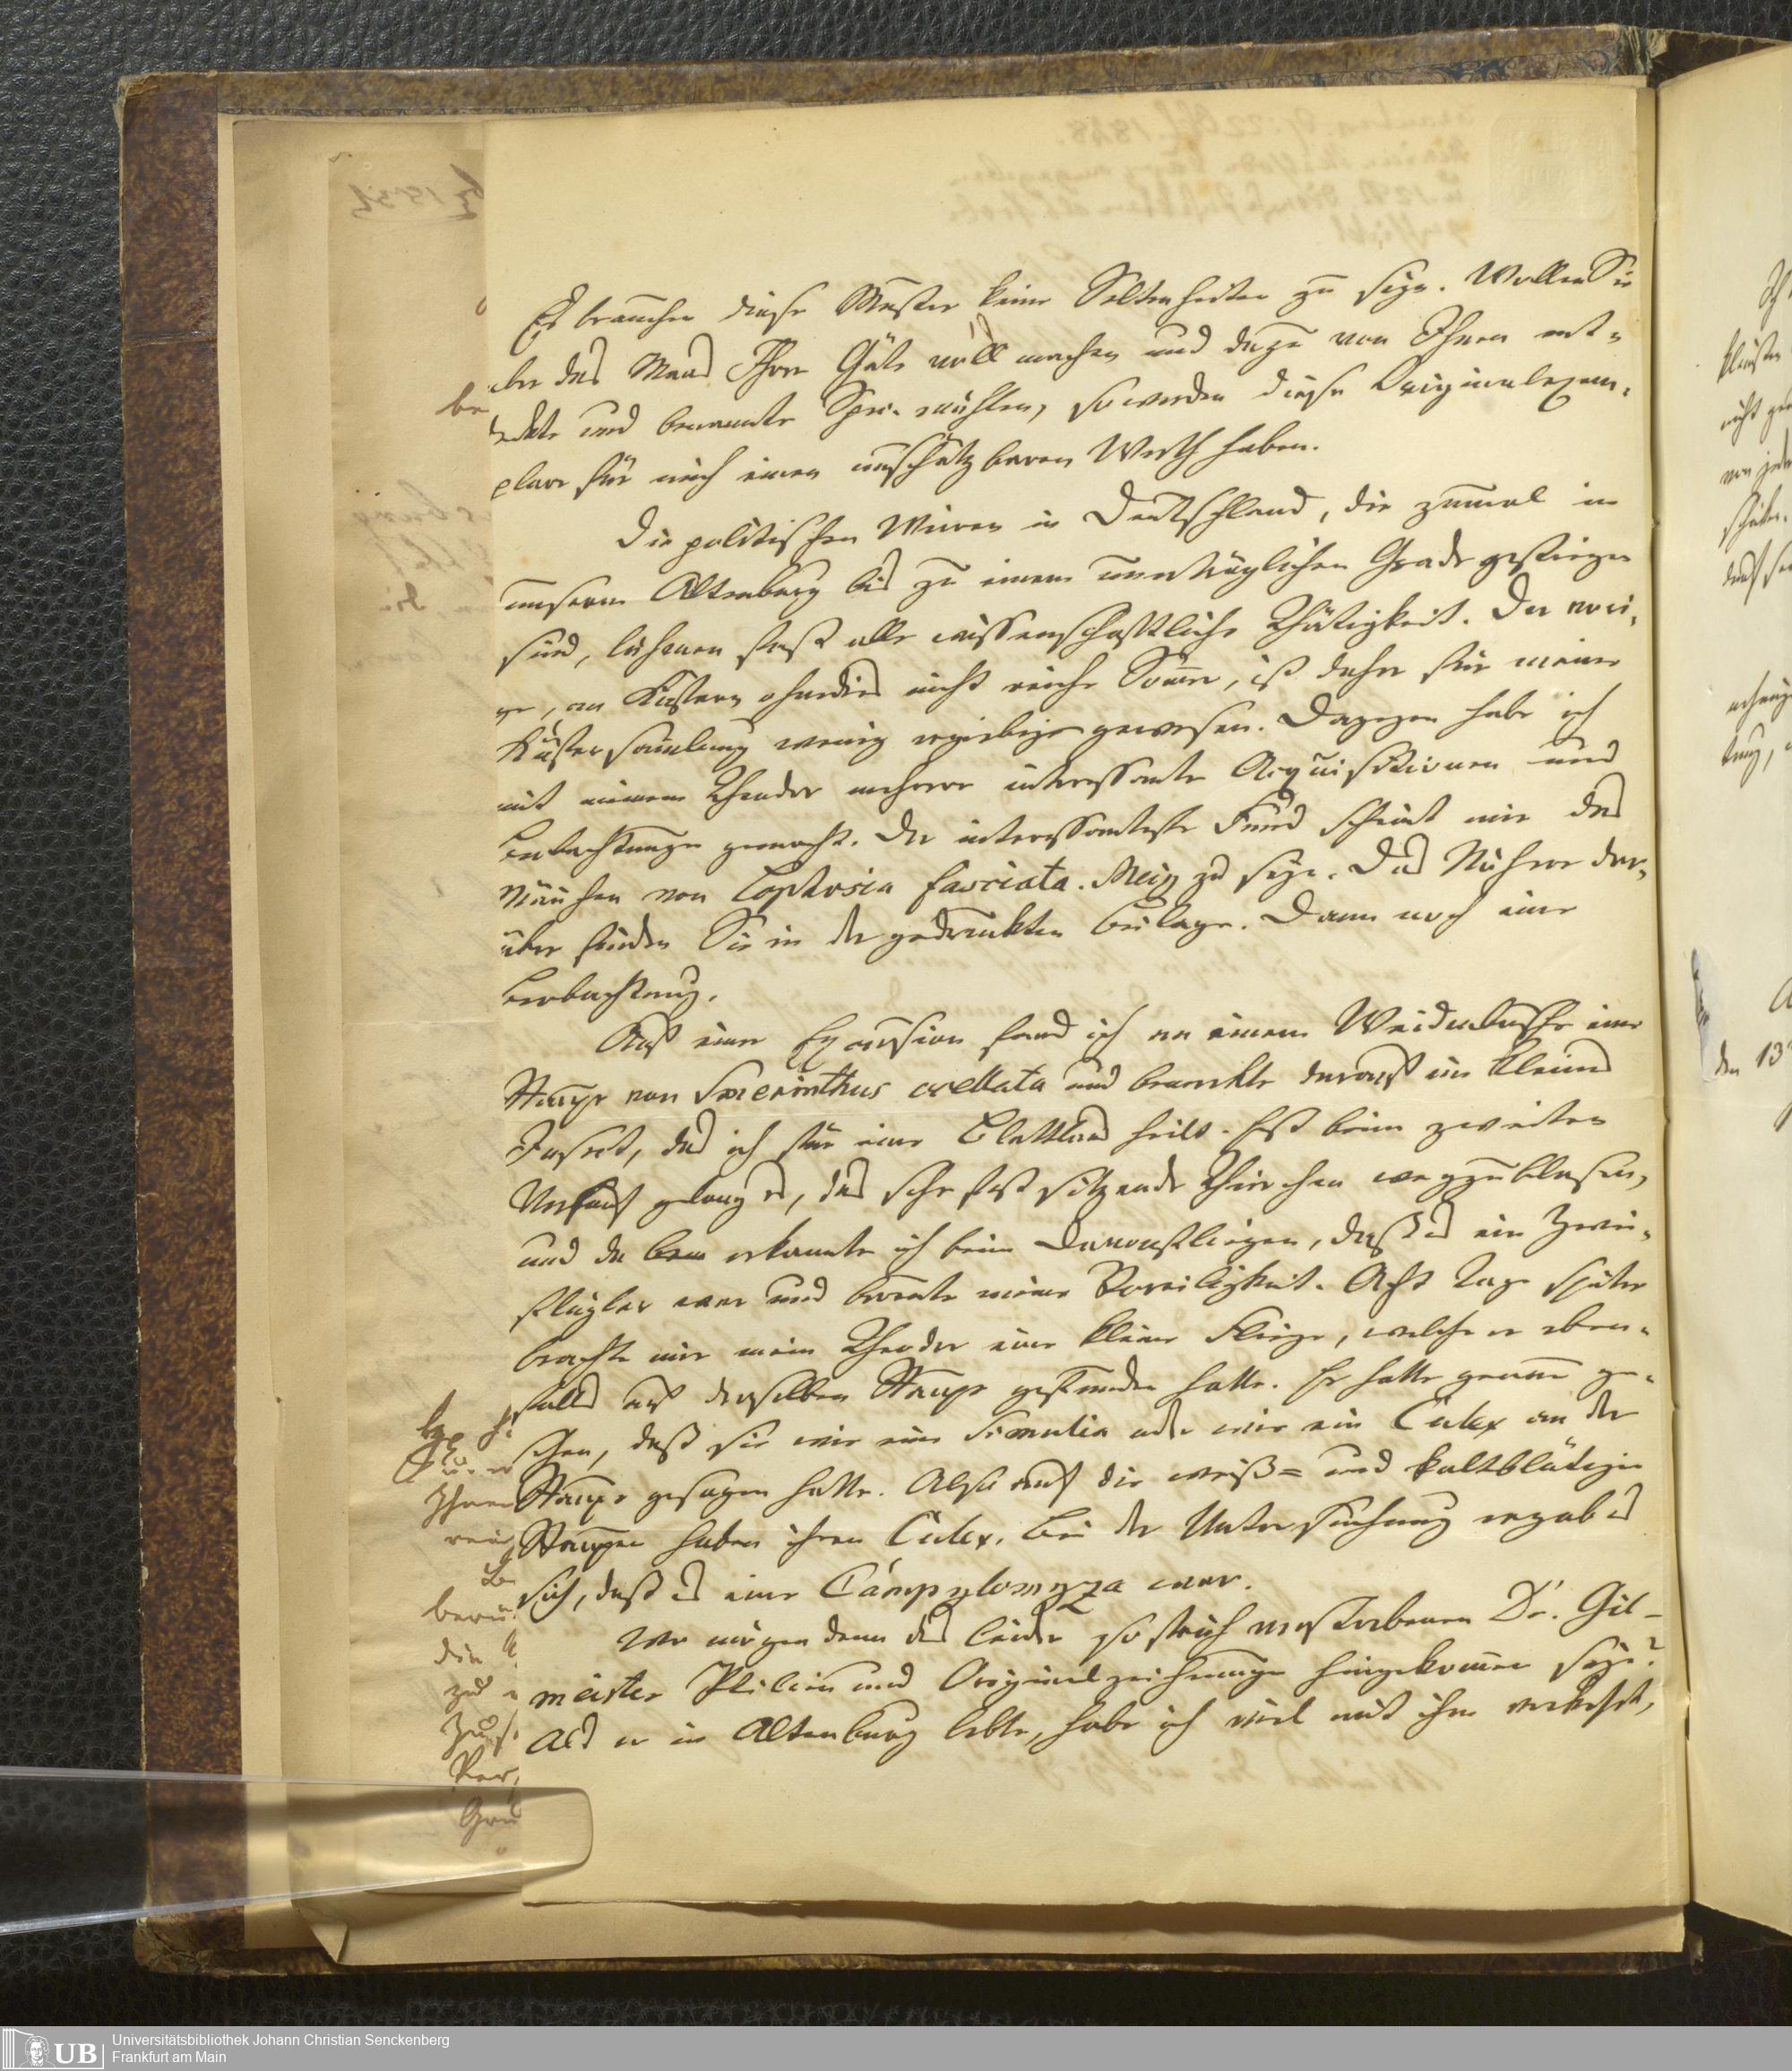 Es brauchen diese Muster keine Seltenheiten zu seyn. Wollen Sie
aber das Maas Ihrer Güte voll machen und dazu von Ihnen ent-
deckte und benannte Spec. wählen, so werden diese Originalexem-
plare für mich einen unschätzbaren Werth haben.
Die politischen Wirren in Deutschland, die zumal in
unserm Altenburg bis zu einem unerträglichen Grade gestiegen
sind, lähmen fast alle wissenschaftliche Thätigkeit. Der vori-
ge, an Käfern ohnedies nicht reiche Somer, ist daher für meine
Käfersamlung wenig ergiebig gewesen. Dagegen habe ich
mit meinem Theodor mehrere interessante Acquisitionen und
Beobachtungen gemacht. Der interessanteste Fund scheint mir das
Mänchen von fasciata. Meig zu seyn. Das Nähere dar-
über finden Sie in der gedruckten Beilage. Dann noch eine
Beobachtung.
Auf einer Excursion fand ich an einem Weidenbusche eine
Raupe von Smerinthus ocellata und bemerkte darauf ein kleines
Insect, das ich für eine Blattlaus hielt. Erst beim zweiten
Versuch gelang es, das sehr fest sitzende Thierchen wegzublasen,
und da erkannte ich beim Davonfliegen, daß es ein Zwei-
flügler war und bereute meine Voreiligkeit. Acht Tage später
brachte mir mein Theodor eine kleine Fliege, welche er eben-
falls auf derselben Raupe gefunden hatte. Er hatte genau ge-
sehen, daß sie wie eine Simulia oder wie ein Culex an der
Raupe gesogen hatte. Also auch die weiß= und kaltblütigen
Raupen haben ihren Culex. Bei der Untersuchung ergab es
sich, daß es eine Campylomyza war.
Wo mögen denn des leider so früh verstorbenen Dr. Gil-
meister und Originalzeichnungen hingekomen seyn?
Als er in Altenburg lebte, habe ich viel mit ihm verkehrt,
UB
Universitätsbibliothek Johann Christian Senckenberg
Frankfurt am Main